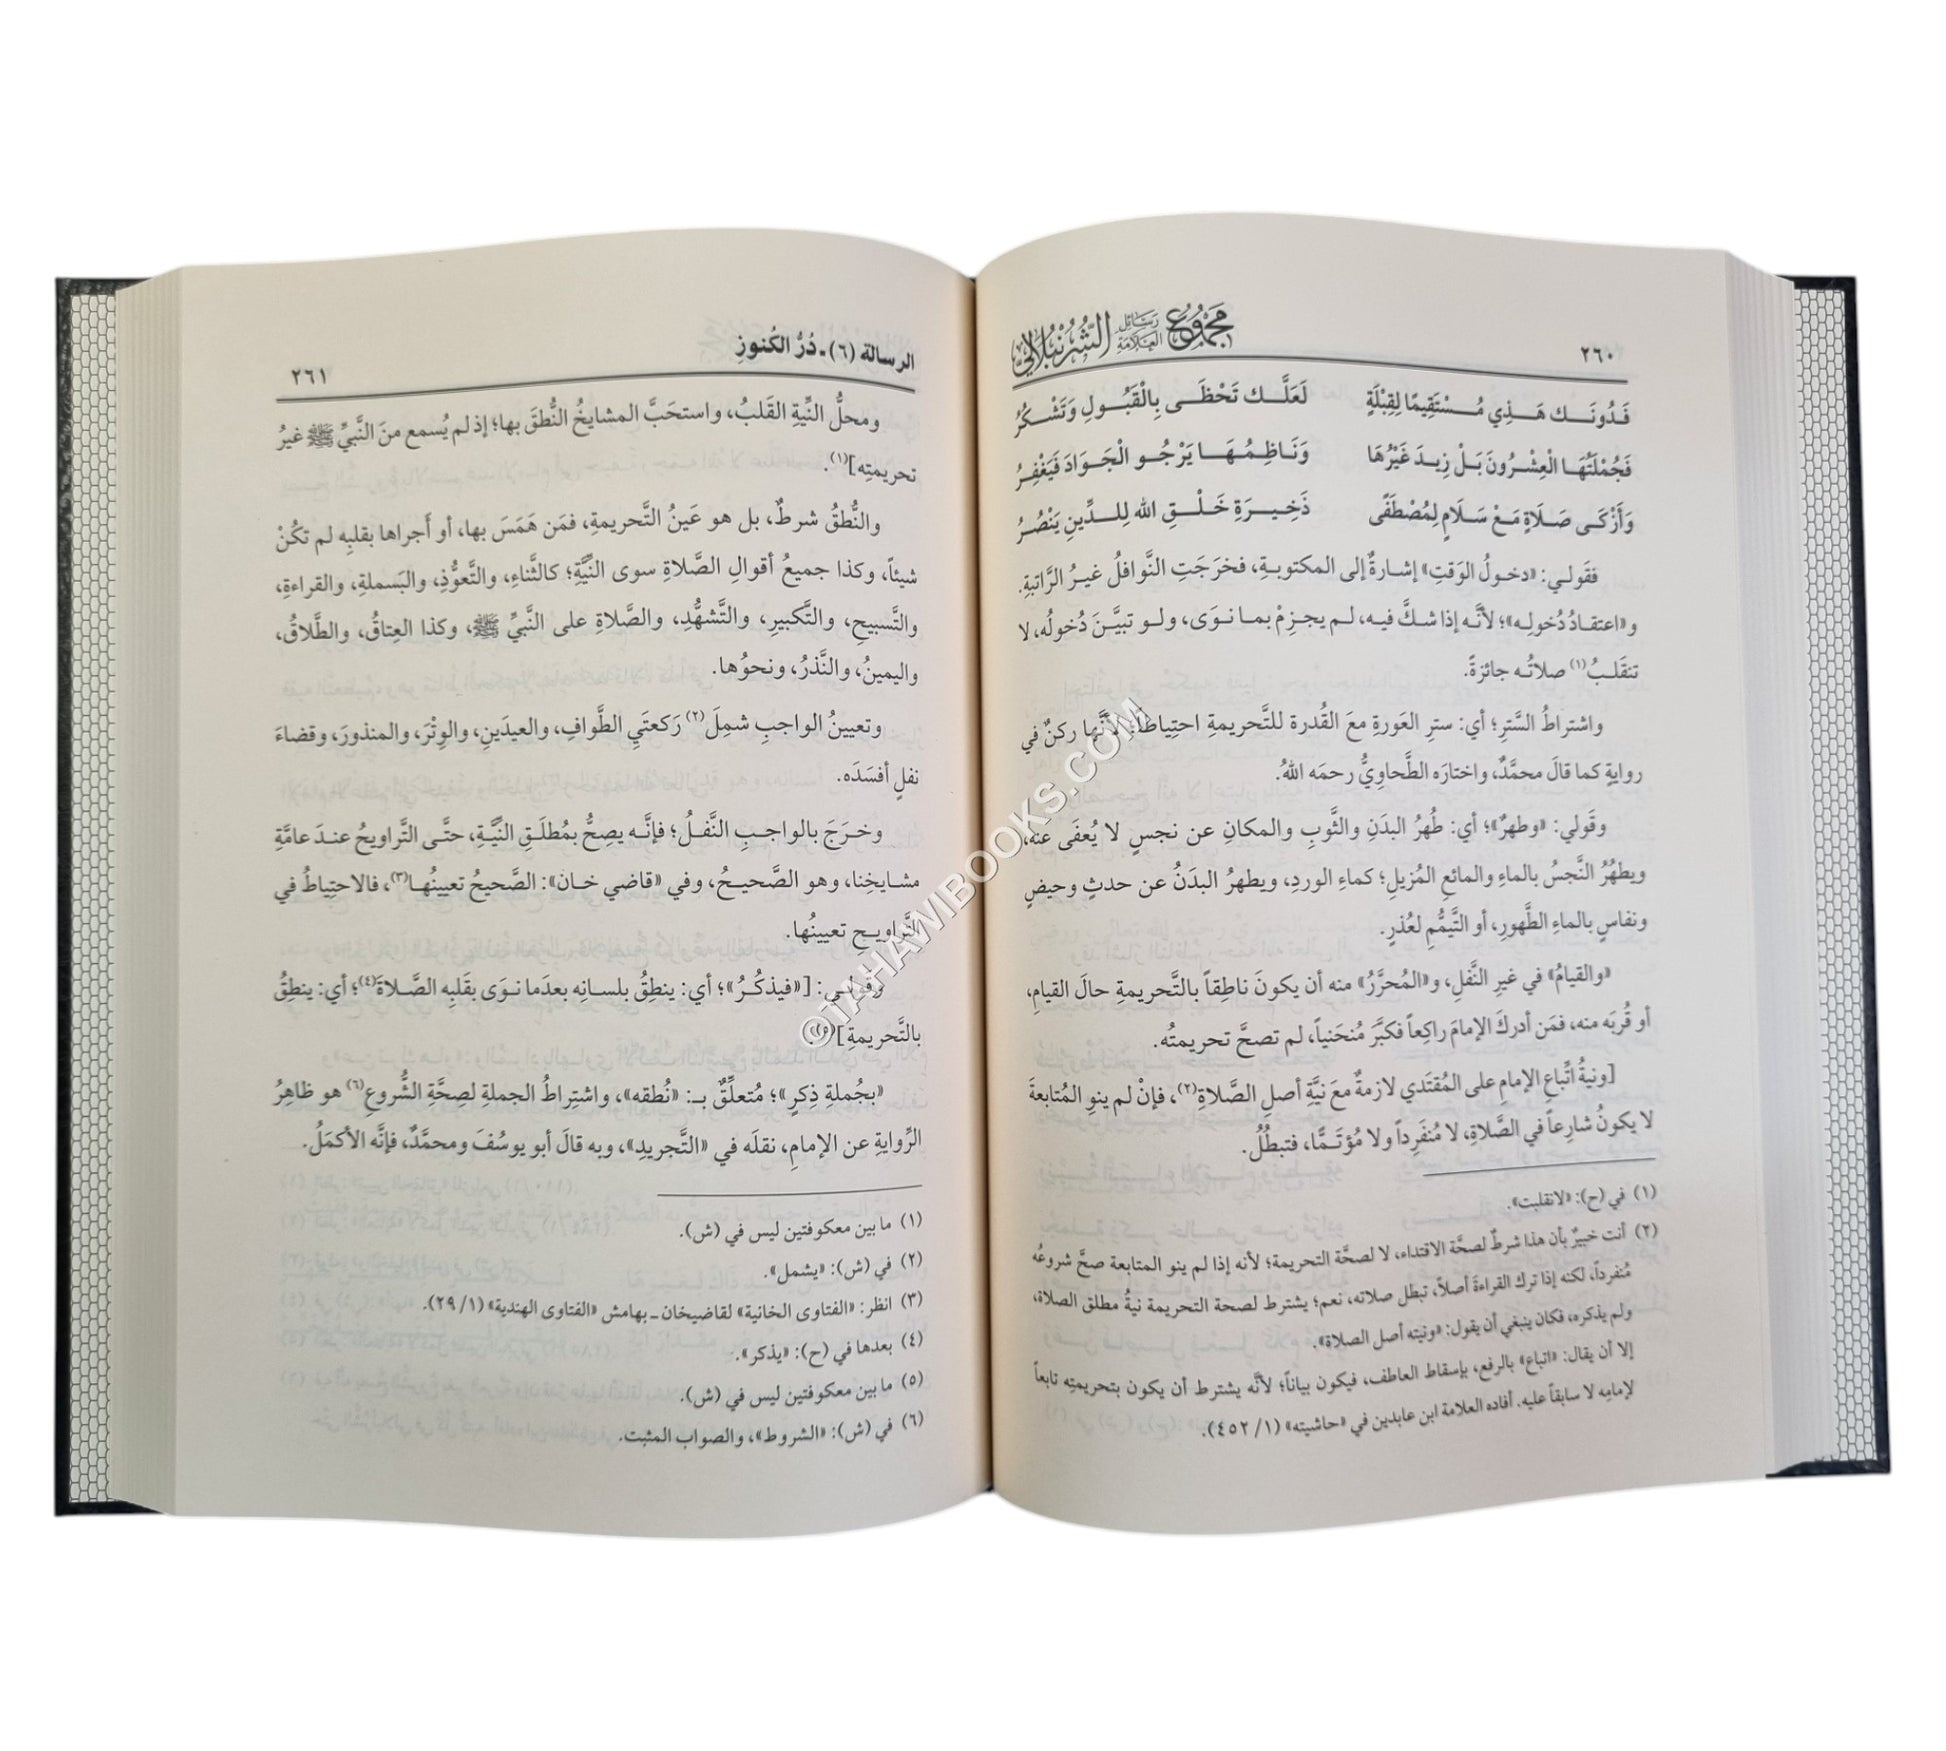 ٢٦٠
مجموع رسائل العلامة الشرنبلالي
فَدُونَـــك هَـــذِي مُـــسْتَقِيمًا لِقِبْلَةٍ لَعَلَّـــك تَحْظَـــى بِالْقَبُـــولِ وَتَشْـــكُرُ
فَجُمْلَتُهَـا الْعِشْـرُونَ بَـلْ زِيـدَ غَيْرُهَا وَنَـاظِـمُـهَـا يَرْجُـو الْجَـوَادَ فَيَغْفِـرُ
وَأَزْكَـى صَـلَاةٍ مَـعْ سَـلَامٍ لِمُصْطَفًى ذَخِيـرَةِ خَلْـقِ اللهِ لِلـدِّينِ يَنْصُـرُ
فقَولـي: «دخـولُ الوَقتِ» إشارةٌ إلى المكتوبـةِ، فخرَجَتِ النَّوافلُ غيـرُ الرَّاتبةِ.
و«اعتقـادُ دُخولِـه»؛ لأنَّـه إذا شـكَّ فيه، لـم يجزِمْ بمـا نـوَى، ولـو تبيَّـنَ دُخولُه، لا
تنقَلـبُ(١) صلاتُـه جائزةً.
واشتراطُ السَّترِ؛ أي: سترِ العَورةِ معَ القُدرة للتَّحريمةِ احتِياطاً؛ لأنَّها ركنٌ في
روايةٍ كما قالَ محمَّدٌ، واختارَه الطَّحاوِيُّ رحمَه اللهُ.
وقَولي: «وطهرٌ»؛ أي: طُهرُ البدَنِ والثَّوبِ والمكانِ عن نجسٍ لا يُعفَى عنه،
ويطهُرُ النَّجسُ بالماءِ والمائعِ المُزيلِ؛ كماءِ الوردِ، ويطهرُ البدَنُ عن حدثٍ وحيضٍ
ونفاسٍ بالماءِ الطَّهورِ، أو التَّيمُّمِ لعُذرٍ.
«والقيامُ» في غيرِ النَّفلِ، و«المُحرَّرُ» منه أن يكونَ ناطِقاً بالتَّحريمةِ حالَ القيامِ،
أو قُربَه منه، فمَن أدركَ الإمامَ راكِعاً فكبَّرَ مُنحَنياً، لم تصحَّ تحريمتُه.
[ونيةُ اتِّباعِ الإمامِ على المُقتَدي لازمةٌ معَ نيَّةِ أصلِ الصَّلاةِ(٢)، فإنْ لم ينوِ المُتابعةَ
لا يكونُ شارِعاً في الصَّلاةِ، لا مُنفَرِداً ولا مُؤتَـمًّا، فتبطُلُ.
(١) في (ح): «لانقلبت».
(٢) أنت خبيرٌ بأن هذا شرطٌ لصحَّة الاقتداء، لا لصحَّة التحريمة؛ لأنه إذا لم ينو المتابعة صحَّ شروعُه
مُنفرداً، لكنه إذا ترك القراءةَ أصلاً، تبطل صلاته، نعم؛ يشترط لصحة التحريمة نيةُ مطلق الصلاة،
ولم يذكره، فكان ينبغي أن يقول: «ونيته أصل الصلاة».
إلا أن يقال: «اتباع» بالرفع، بإسقاط العاطف، فيكون بياناً؛ لأنَّه يشترط أن يكون بتحريمتِه تابعاً
لإمامِه لا سابقاً عليه. أفاده العلامة ابن عابدين في «حاشيته» (١/ ٤٥٢).
الرسالة (٦) ـ دُرُّ الكُنوزِ
٢٦١
ومحلُّ النِّيةِ القَلبُ، واستحَبَّ المشايخُ النُّطقَ بها؛ إذ لم يُسمع منَ النَّبيِّ ﷺ غيرُ
تحريمتِه](١).
والنُّطقُ شرطٌ، بل هو عَينُ التَّحريمةِ، فمَن هَمَسَ بها، أو أَجراها بقلبِه لم تكُنْ
شيئاً، وكذا جميعُ أقوالِ الصَّلاةِ سوى النيَّةِ؛ كالثَّناءِ، والتَّعوُّذِ، والبَسملةِ، والقراءةِ،
والتَّسبيحِ، والتَّكبيرِ، والتَّشهُّدِ، والصَّلاةِ على النَّبيِّ ﷺ، وكذا العِتاقُ، والطَّلاقُ،
واليمينُ، والنَّذرُ، ونحوُها.
وتعيينُ الواجبِ شملَ(٢) رَكعتَيِ الطَّوافِ، والعيدَينِ، والوِتْرَ، والمنذورَ، وقضاءَ
نفلٍ أفسَدَه.
وخـرَجَ بالواجـبِ النَّفـلُ؛ فإنَّـه يصِحُّ بمُطلَـقِ النِّيَّـةِ، حتَّـى التَّراويـحُ عنـدَ عامَّةِ
مشـايخِنا، وهـو الصَّحيـحُ، وفي «قاضي خـان»: الصَّحيحُ تعيينُهـا(٣)، فالاحتِياطُ في
التَّراويـحِ تعيينُها.
وقَولـي: [«فيذكُـرُ»؛ أي: ينطِقُ بلسانِه بعدَما نـوَى بقَلبِه الصَّـلاةَ(٤)؛ أي: ينطِقُ
بالتَّحريمةِ](٥).
«بجُملةِ ذِكرٍ»؛ مُتعلِّقٌ بـ: «نُطقه»، واشتِراطُ الجملةِ لصِحَّةِ الشُّروعِ(٦) هو ظاهِرُ
الرِّوايةِ عن الإمامِ، نقلَه في «التَّجريدِ»، وبه قالَ أبو يوسُفَ ومحمَّدٌ، فإنَّه الأكمَلُ.
(١) ما بين معكوفتين ليس في (ش).
(٢) في (ش): «يشمل».
(٣) انظر: «الفتاوى الخانية» لقاضيخان ـ بهامش «الفتاوى الهندية» (١/ ٢٩).
(٤) بعدها في (ح): «يذكر».
(٥) ما بين معكوفتين ليس في (ش).
(٦) في (ش): «الشروط»، والصواب المثبت.
©TAHAWIBOOKS.COM